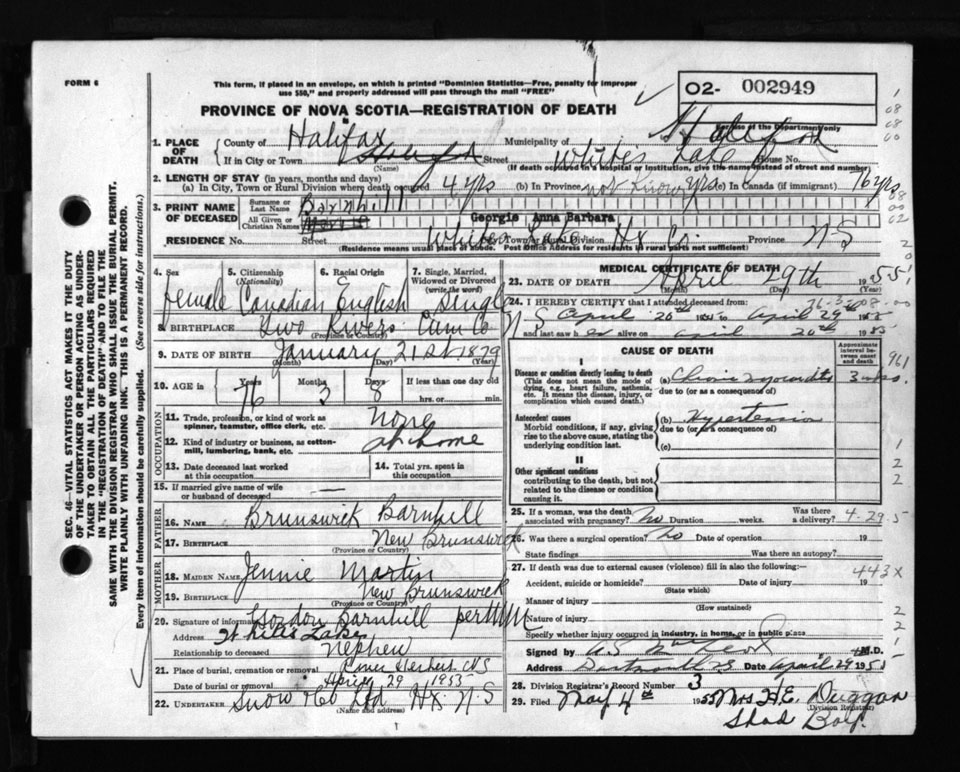 FORM 6
This form, if placed in an envelope, on which is printed "Dominion Statistics—Free, penalty for improper
use $50," and properly addressed will pass through the mail "FREE"
PROVINCE OF NOVA SCOTIA—REGISTRATION OF DEATH
02- 002949
For use of the Department only
SEC. 46—VITAL STATISTICS ACT MAKES IT THE DUTY
OF THE UNDERTAKER OR PERSON ACTING AS UNDER-
TAKER TO OBTAIN ALL THE PARTICULARS REQUIRED
IN THE "REGISTRATION OF DEATH" AND TO FILE THE
SAME WITH THE DIVISION REGISTRAR WHO SHALL ISSUE THE BURIAL PERMIT.
WRITE PLAINLY WITH UNFADING INK. THIS IS A PERMANENT RECORD.
Every item of information should be carefully supplied. (See reverse side for instructions.)
1. PLACE OF DEATH
County of Halifax Municipality of Halifax
If in City or Town Street Whites Lake House No.
(Name) (If death occurred in a hospital or institution, give the name instead of street and number)
2. LENGTH OF STAY (in years, months and days)
(a) In City, Town or Rural Division where death occurred 4 yrs (b) In Province not known yrs (c) In Canada (if immigrant) 76 yrs
3. PRINT NAME OF DECEASED
Surname or Last Name Barnhill
All Given or Christian Names Georgie Anna Barbara
RESIDENCE No. Street Whites Lake Town or Rural Division Hx Co. Province N S
(Residence means usual place of abode. Post Office Address for residents in rural parts not sufficient)
4. Sex 5. Citizenship (Nationality) 6. Racial Origin 7. Single, Married, Widowed or Divorced (write the word)
female Canadian English Single
8. BIRTHPLACE Two Rivers Cum Co N S
(Province or Country)
9. DATE OF BIRTH January 21st 1879
(Month) (Day) (Year)
10. AGE in Years Months Days If less than one day old
76 3 8 hrs. or min.
OCCUPATION
11. Trade, profession, or kind of work as spinner, teamster, office clerk, etc. None
12. Kind of industry or business, as cotton-mill, lumbering, bank, etc. at home
13. Date deceased last worked at this occupation 14. Total yrs. spent in this occupation
15. If married give name of wife or husband of deceased —
FATHER
16. NAME Brunswick Barnhill
17. BIRTHPLACE New Brunswick
(Province or Country)
MOTHER
18. MAIDEN NAME Jennie Martin
19. BIRTHPLACE New Brunswick
(Province or Country)
20. Signature of informant Gordon Barnhill per
Address Whites Lake
Relationship to deceased Nephew
21. Place of burial, cremation or removal Herbert NS
Date of burial or removal April 29 1955
22. UNDERTAKER Snow & Co Ltd Hx. N.S
(Name and address)
MEDICAL CERTIFICATE OF DEATH
23. DATE OF DEATH April 29th 1955
(Month) (Day) (Year)
24. I HEREBY CERTIFY that I attended deceased from
April 20th 1955 to April 29th 1955
and last saw her alive on April 20th 1955
CAUSE OF DEATH
Approximate interval between onset and death
I
Disease or condition directly leading to death
(This does not mean the mode of dying, e.g., heart failure, asthenia, etc. It means the disease, injury, or complication which caused death.)
(a) Chronic Myocarditis
due to (or as a consequence of)
Antecedent causes
Morbid conditions, if any, giving rise to the above cause, stating the underlying condition last.
(b) Hypertension
due to (or as a consequence of)
(c)
II
Other significant conditions
contributing to the death, but not related to the disease or condition causing it.
25. If a woman, was the death associated with pregnancy? No Duration weeks. Was there a delivery?
4.29.5
26. Was there a surgical operation? No Date of operation 19
State findings Was there an autopsy?
27. If death was due to external causes (violence) fill in also the following:—
443X
Accident, suicide or homicide? Date of injury 19
(State which)
Manner of injury
(How sustained)
Nature of injury
Specify whether injury occurred in industry, in home, or in public place
Signed by M.D.
Address Dartmouth NS Date April 29 1955
28. Division Registrar's Record Number 3
29. Filed May 4th 1955 Mrs H.E. Duggan
(Division Registrar)
Shad Bay.